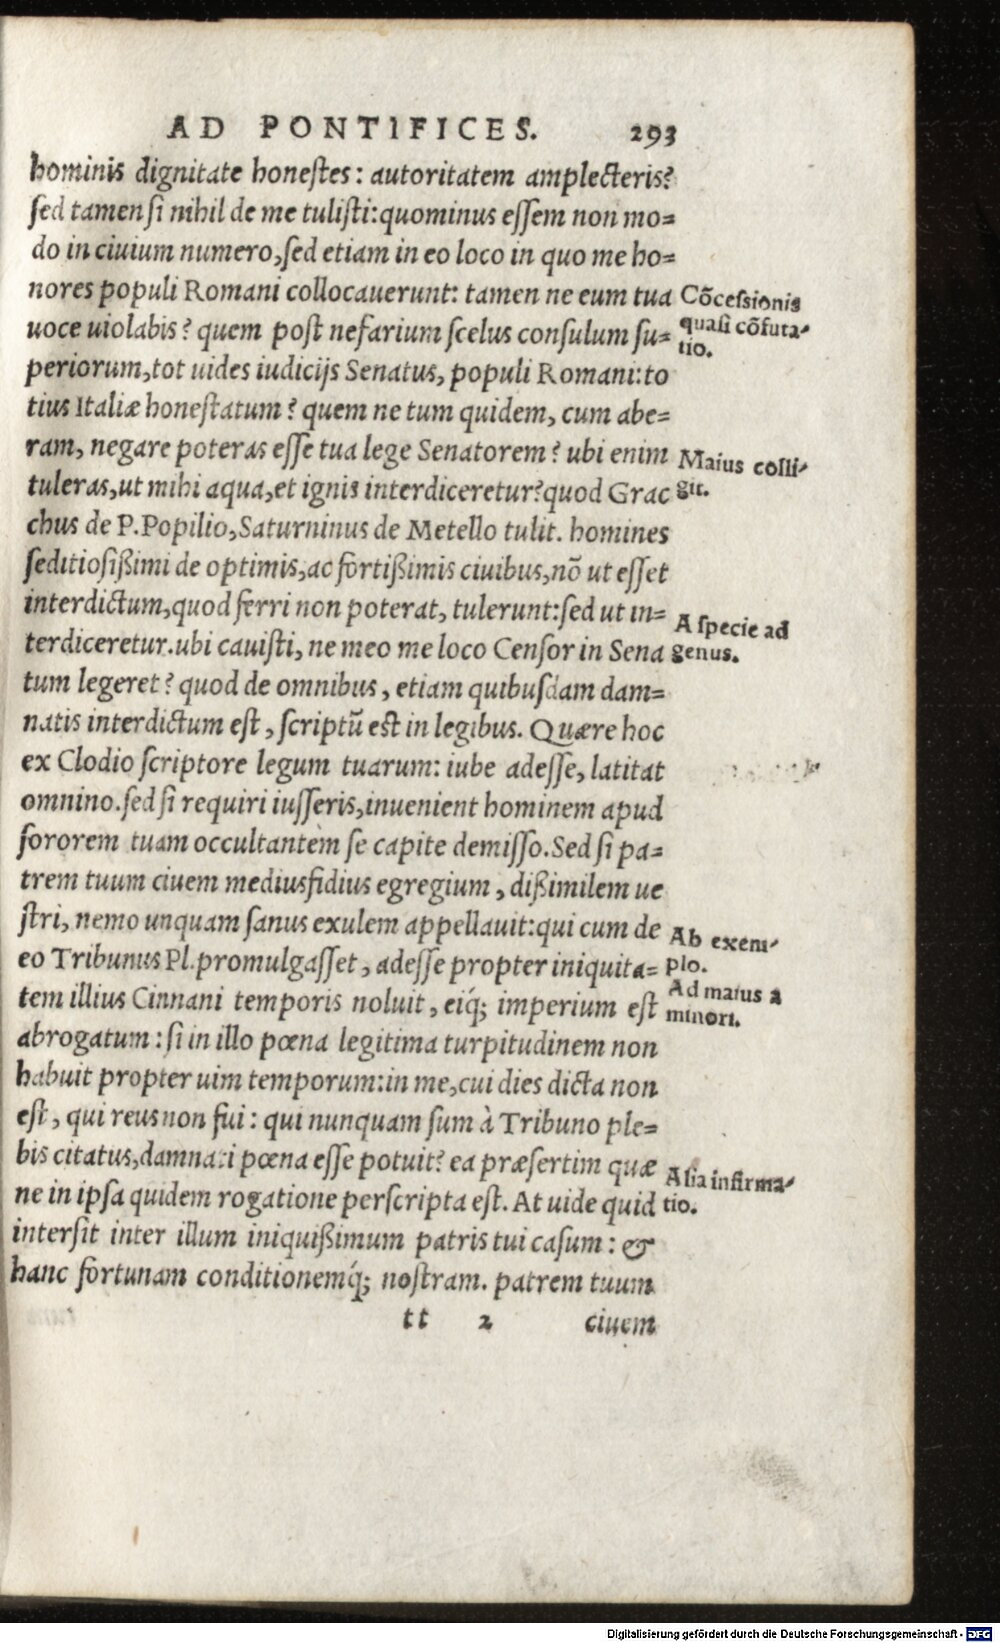 AD PONTIFICES. 293
hominis dignitate honeſtes: autoritatem amplecteris?
ſed tamen ſi nihil de me tuliſti: quominus eſſem non mo=
do in ciuium numero, ſed etiam in eo loco in quo me ho=
nores populi Romani collocauerunt: tamen ne eum tua
Cõceſsionis
uoce uiolabis? quem poſt nefarium ſcelus conſulum ſu=
quaſi cõfuta-
tio.
periorum, tot uides iudicijs Senatus, populi Romani: to
tius Italiæ honeſtatum? quem ne tum quidem, cum abe=
ram, negare poteras eſſe tua lege Senatorem? ubi enim
Maius colli-
tuleras, ut mihi aqua, et ignis interdiceretur? quod Grac
git.
chus de P. Popilio, Saturninus de Metello tulit. homines
ſeditioſißimi de optimis, ac fortißimis ciuibus, nõ ut eſſet
interdictum, quod ferri non poterat, tulerunt: ſed ut in=
A ſpecie ad
terdiceretur. ubi cauiſti, ne meo me loco Cenſor in Sena
genus.
tum legeret? quod de omnibus, etiam quibuſdam dam=
natis interdictum eſt, ſcriptũ eſt in legibus. Quære hoc
ex Clodio ſcriptore legum tuarum: iube adeſſe, latitat
omnino. ſed ſi requiri iuſſeris, inuenient hominem apud
ſororem tuam occultantem ſe capite demiſſo. Sed ſi pa=
trem tuum ciuem mediusfidius egregium, dißimilem ue
ſtri, nemo unquam ſanus exulem appellauit: qui cum de
Ab exem-
eo Tribunus Pl. promulgaſſet, adeſſe propter iniquita=
plo.
Ad maius a
tem illius Cinnani temporis noluit, eiq́; imperium eſt
minori.
abrogatum: ſi in illo pœna legitima turpitudinem non
habuit propter uim temporum: in me, cui dies dicta non
eſt, qui reus non fui: qui nunquam ſum à Tribuno ple=
bis citatus, damnati pœna eſſe potuit? ea præſertim quæ
Alia infirma-
ne in ipſa quidem rogatione perſcripta eſt. At uide quid
tio.
interſit inter illum iniquißimum patris tui caſum: &
hanc fortunam conditionemq́; noſtram. patrem tuum
tt 2 ciuem
Digitalisierung gefördert durch die Deutsche Forschungsgemeinschaft - DFG